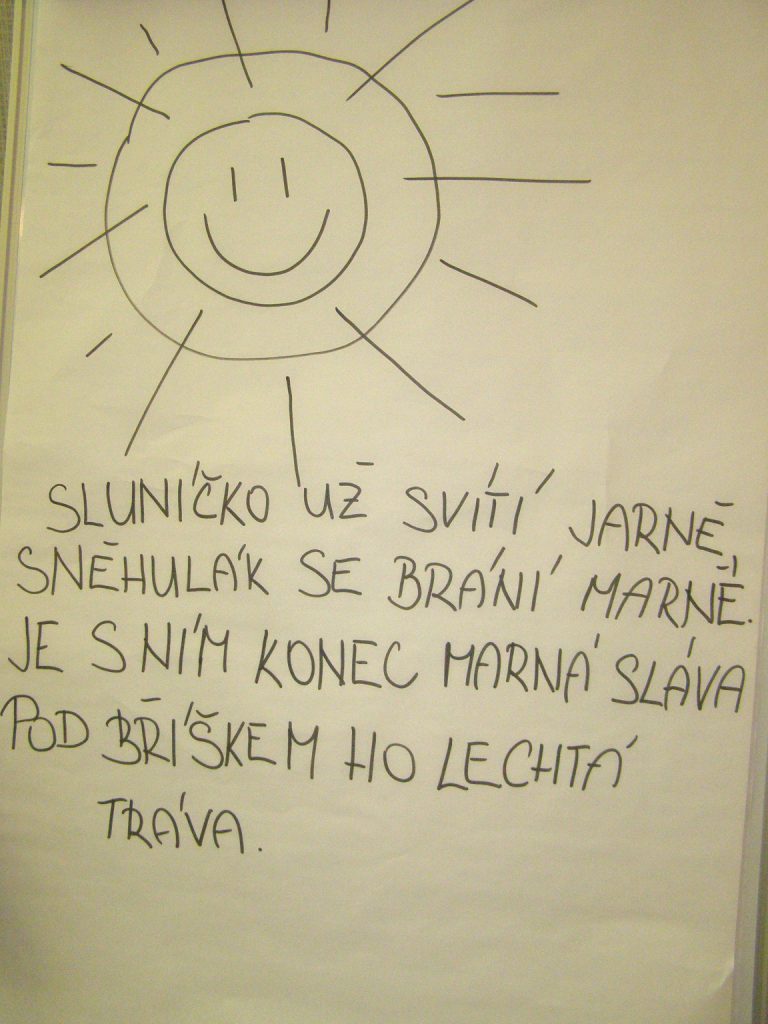 SLUNÍČKO UŽ SVÍTÍ JARNĚ,
SNĚHULÁK SE BRÁNÍ MARNĚ.
JE S NÍM KONEC MARNÁ SLÁVA
POD BŘÍŠKEM HO LECHTÁ
TRÁVA.